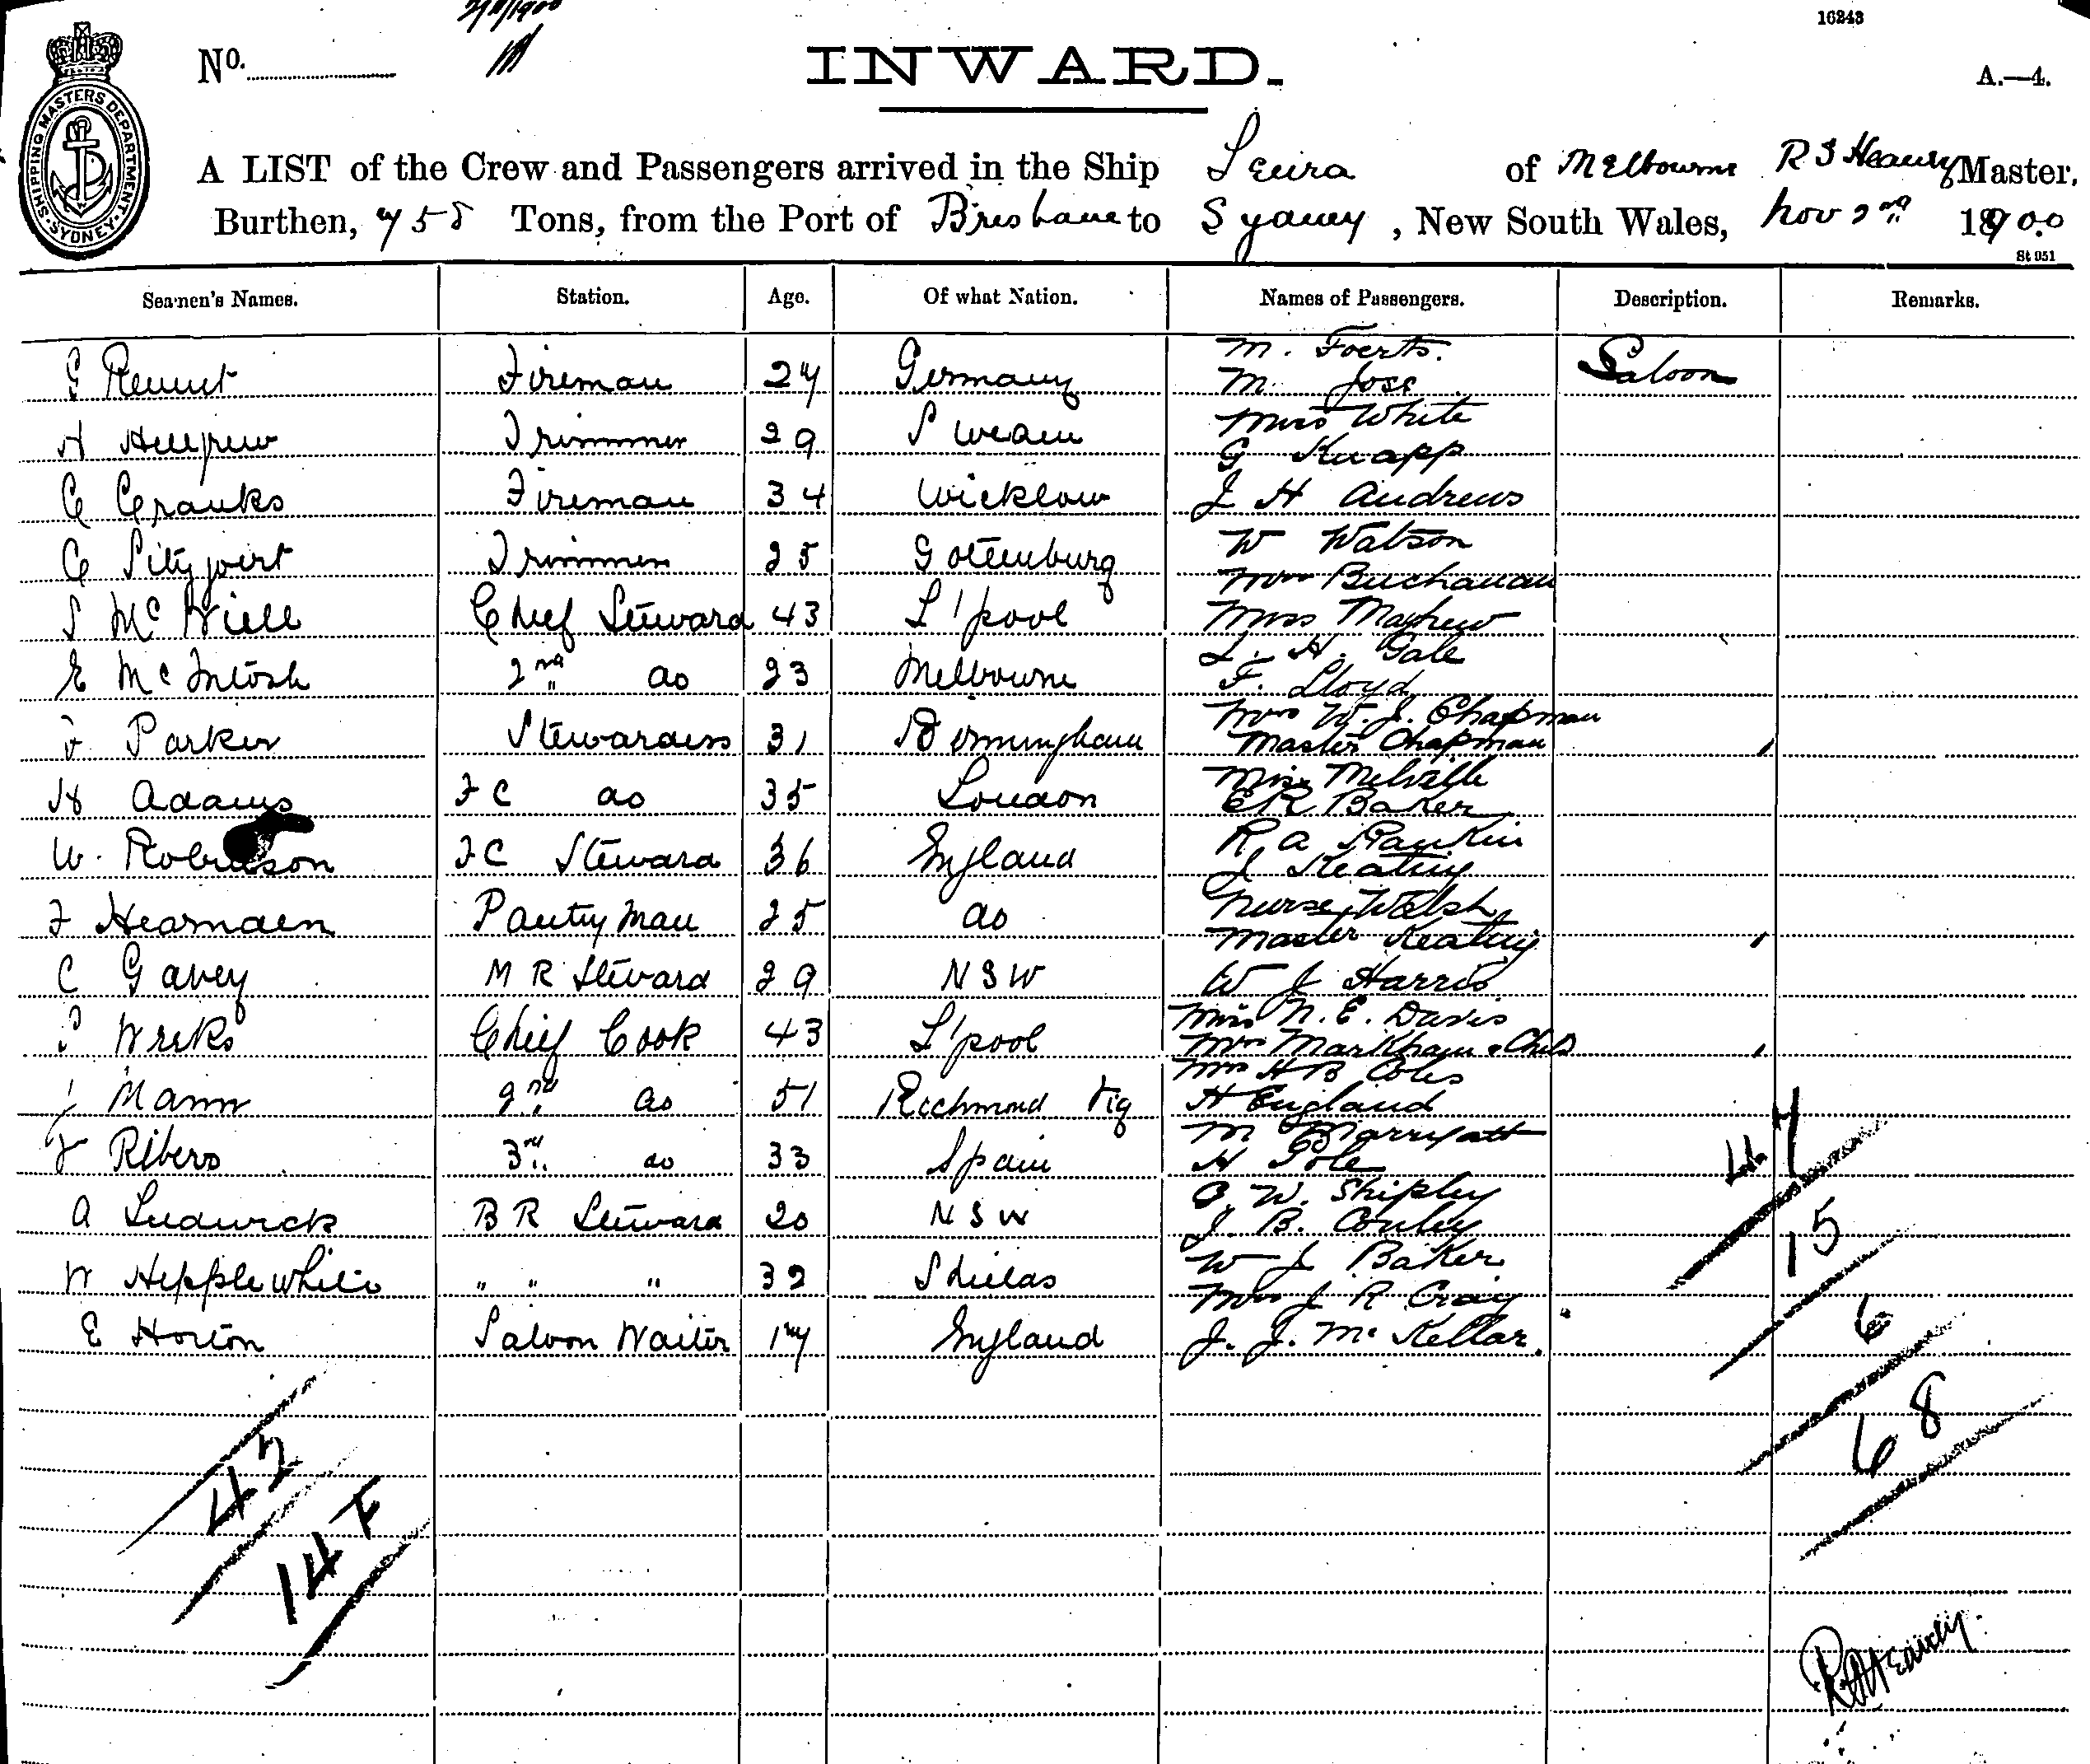 2/11/1900
16243
No.
INWARD.
A.—4.
SHIPPING MASTERS DEPARTMENT. SYDNEY
A LIST of the Crew and Passengers arrived in the Ship of Melbourne Master,
Burthen, 758 Tons, from the Port of Brisbane to Sydney, New South Wales, Nov 2nd 1900
St 051
Seamen's Names. Station. Age. Of what Nation. Names of Passengers. Description. Remarks.
M. Foerts.
Fireman 27 Germany M. Jose Saloon
Miss White
A Trimmer 29 Sweden G Knapp
C Cranks Fireman 34 Wicklow J H Andrews
W Watson
C Trimmer 25 Gotenburg Mrs Buchanan
S McNiell Chief Steward 43 L'pool Miss Mayhew
L. H. Gale
E McIntosh 2nd do 23 Melbourne F. Lloyd
Mrs W. J. Chapman
F. Parker Stewardess 31 Birmingham Master Chapman
Miss Melville
H Adams FC do 35 London E R Baker
R A Rankin
W. Robinson FC Steward 36 England J Keating
Nurse Walsh
F Hearnden Pantry Man 25 do Master Keating
C Gavey M R Steward 29 NSW W J Harris
Miss N. E. Davis
Chief Cook 43 L'pool Mrs Markham & Child
Mrs H B Coles
J Mann 2nd do 51 Richmond Vic H England
M Marryatt
F Ribero 3rd do 33 Spain H Pole
C. W. Shipley
A Ludwick B R Steward 20 NSW J. B. Conley
W J Baker
W Hepplewhite " " " 32 Shields Mrs J R Craig
E Horton Saloon Waiter 17 England J. J. McKellar.
47
15
6
68
42
14 F